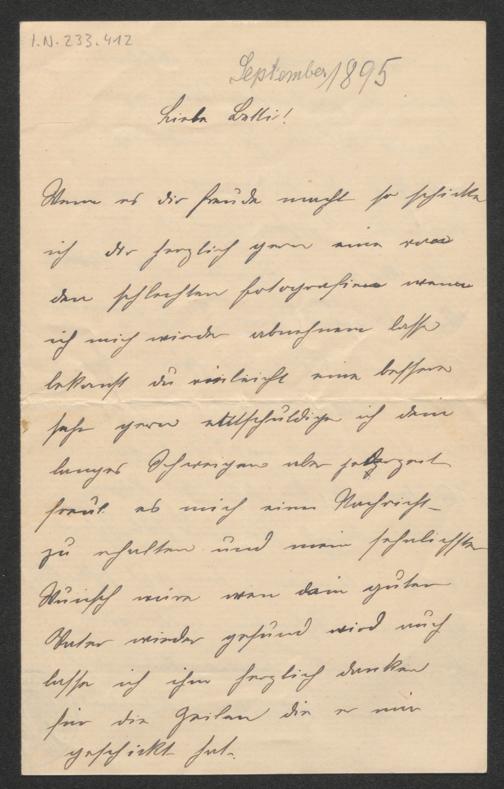 I.N. 233.412
September 1895
Liebe Betti!
Wenn es dir freude macht so schikke
ich dir herzlich gern eine von
den schlechten fotografien wenn
ich mich wieder abnehmen lasse
bekomst du vieleicht eine bessere
sehr gern entschuldige ich dein
langes Schweigen aber jederzeit
freut es mich eine Nachricht
zu erhalten und mein sehnlichster
Wunsch wäre wen dein guter
Vater wieder gesund wird auch
lasse ich ihm herzlich danken
für die Zeilen die er mir
geschickt hat.